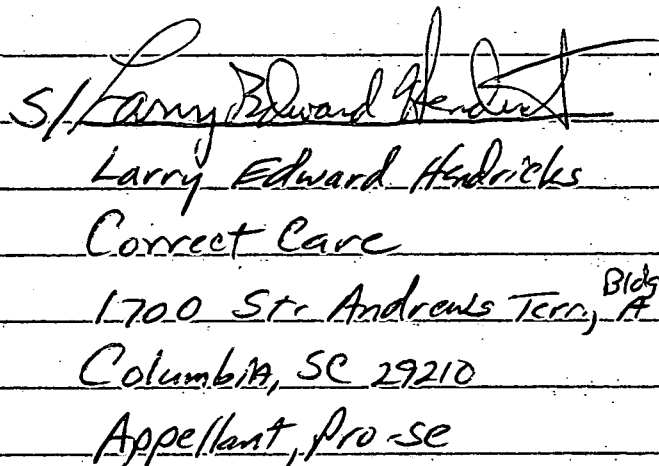 S/ Larry Edward Hendricks
Larry Edward Hendricks
Correct Care
1700 St. Andrews Terr, Bldg A
Columbia, SC 29210
Appellant, Pro-se